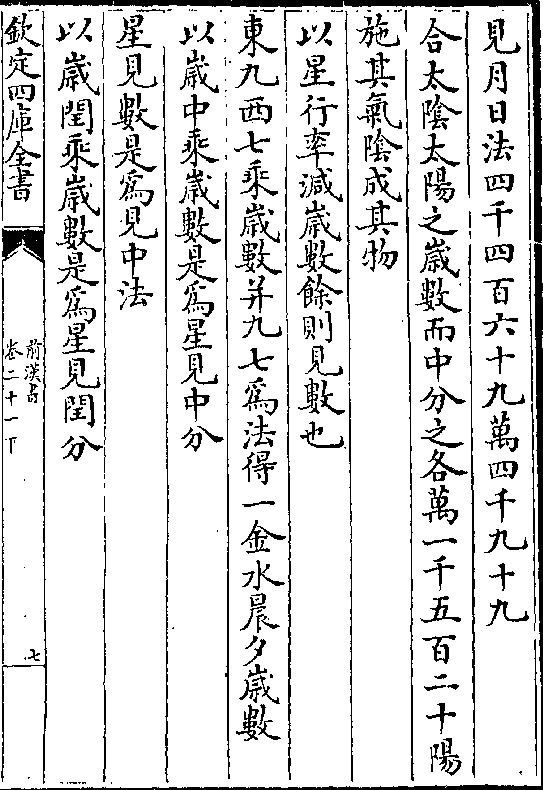 見月日法四千四百六十九萬四千九十九
合太陰太陽之歲數而中分之各萬一千五百二十陽
施其氣陰成其物
以星行率減歲數餘則見數也
東九西七乘歲數并九七為法得一金水晨夕歲數
以歲中乘歲數是為星見中分
星見數是為見中法
以歲閏乘歲數是為星見閏分
欽定四庫全書
前漢書
卷二十一下
七